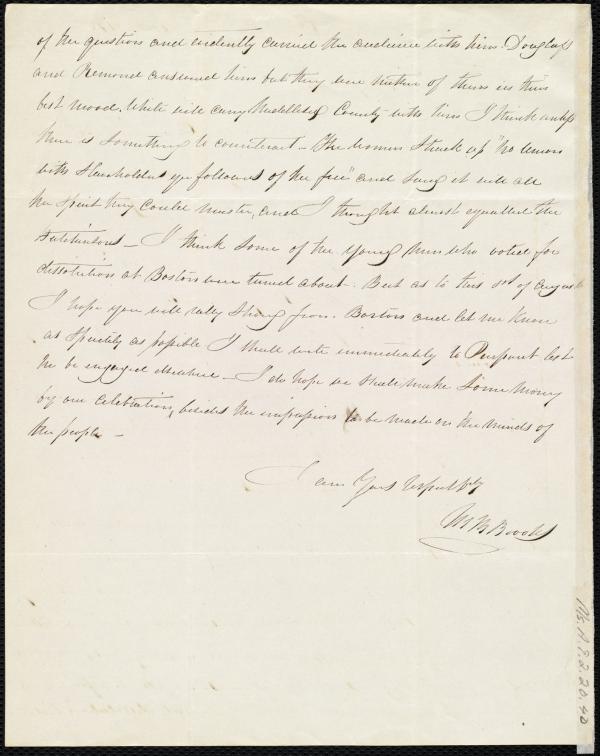 of the question and evidently carried the audience with him. Douglass
and Remond answered him but they were neither of them in their
best mood. White will carry Middlesex County with him I think unless
there is something to counteract – The women struck up "No Union
with Slaveholders ye followers of the free" and sung it with all
the spirit they could muster, and I thought almost equalled the
Hutchinsons – I think some of the young men who voted for
dissolution at Boston were turned about. But as to this 1st of August
I hope you will rally strong from Boston and let me know
as speedily as possible I shall write immediately to Pierpont lest
he be engaged elsewhere – I do hope we shall make some money
by our celebration, besides the impression to be made on the minds of
the people –
I am Yours respectfully
M M Brooks
Ms.A.9.2.20.40